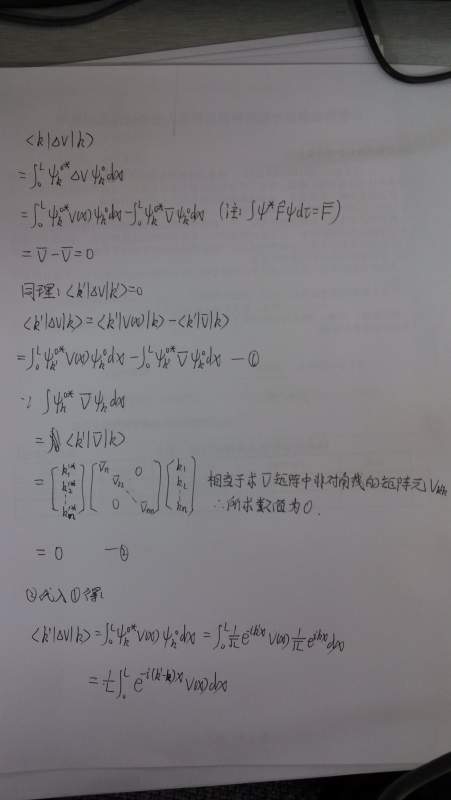 <k|ΔV|k>
=∫₀ᴸ ψₖ⁰* ΔV ψₖ⁰ dx
=∫₀ᴸ ψₖ⁰* V(x) ψₖ⁰ dx - ∫₀ᴸ ψₖ⁰* V̄ ψₖ⁰ dx (注: ∫ψ* F̂ ψ dτ = F̄)
= V̄ - V̄ = 0
同理: <k'|ΔV|k'> = 0
<k'|ΔV|k> = <k'|V(x)|k> - <k'|V̄|k>
=∫₀ᴸ ψₖ'⁰* V(x) ψₖ⁰ dx - ∫₀ᴸ ψₖ'⁰* V̄ ψₖ⁰ dx —①
∵ ∫ψₖ'⁰* V̄ ψₖ dx
= <k'|V̄|k>
= [k₁'* k₂'* ⋮ kₙ'*] [V̄₁₁ V̄₂₂ ⋱ V̄ₙₙ 0 0] [k₁ k₂ ⋮ kₙ] 相当于求V̄矩阵中非对角线的矩阵元Vₖ'ₖ
∴所求数值为0.
= 0 —②
②代入①得:
<k'|ΔV|k> = ∫₀ᴸ ψₖ'⁰* V(x) ψₖ⁰ dx = ∫₀ᴸ 1/√L e^(-ik'x) V(x) 1/√L e^(ikx) dx
= 1/L ∫₀ᴸ e^(-i(k'-k)x) V(x) dx